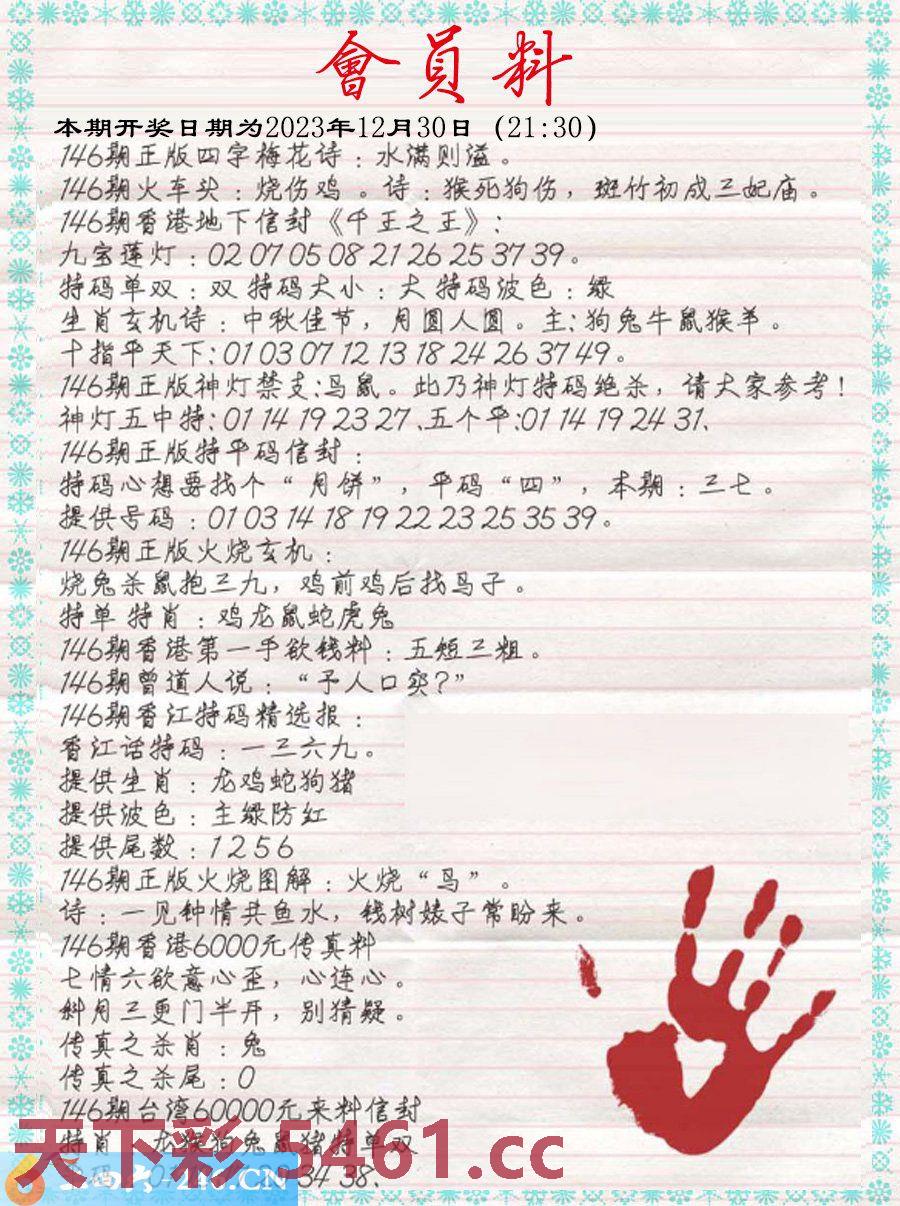 會員料
本期开奖日期为2023年12月30日 (21:30)
146期正版四字梅花诗：水满则溢。
146期火车头：烧伤鸡 。诗：猴死狗伤，斑竹初成三妃庙。
146期香港地下信封《千王之王》：
九宝莲灯：02 07 05 08 21 26 25 37 39。
特码单双：双 特码大小：大 特码波色：绿
生肖玄机诗：中秋佳节，月圆人圆。主：狗兔牛鼠猴羊。
十指平天下：01 03 07 12 13 18 24 26 37 49。
146期正版神灯禁支:马鼠。此乃神灯特码绝杀，请大家参考！
神灯五中特：01 14 19 23 27 、五个平:01 14 19 24 31、
146期正版特平码信封：
特码心想要找个“月饼”，平码“四”，本期：三七。
提供号码：01 03 14 18 19 22 23 25 35 39。
146期正版火烧玄机：
烧兔杀鼠抱三九，鸡前鸡后找马子。
特单 特肖：鸡龙鼠蛇虎兔
146期香港第一手欲钱料：五短三粗。
146期曾道人说：“予人口实？”
146期香江特码精选报：
香江话特码：一三六九。
提供生肖：龙鸡蛇狗猪
提供波色：主绿防红
提供尾数：1 2 5 6
146期正版火烧图解：火烧“鸟”。
诗：一见钟情共鱼水，钱树婊子常盼来。
146期香港6000元传真料
七情六欲意心歪，心连心。
斜月三更门半开，别猜疑。
传真之杀肖：兔
传真之杀尾：0
146期台湾60000元来料信封
特肖：龙猴狗兔鼠猪特单双
34 38、
天下彩.5461.cc
246.CN